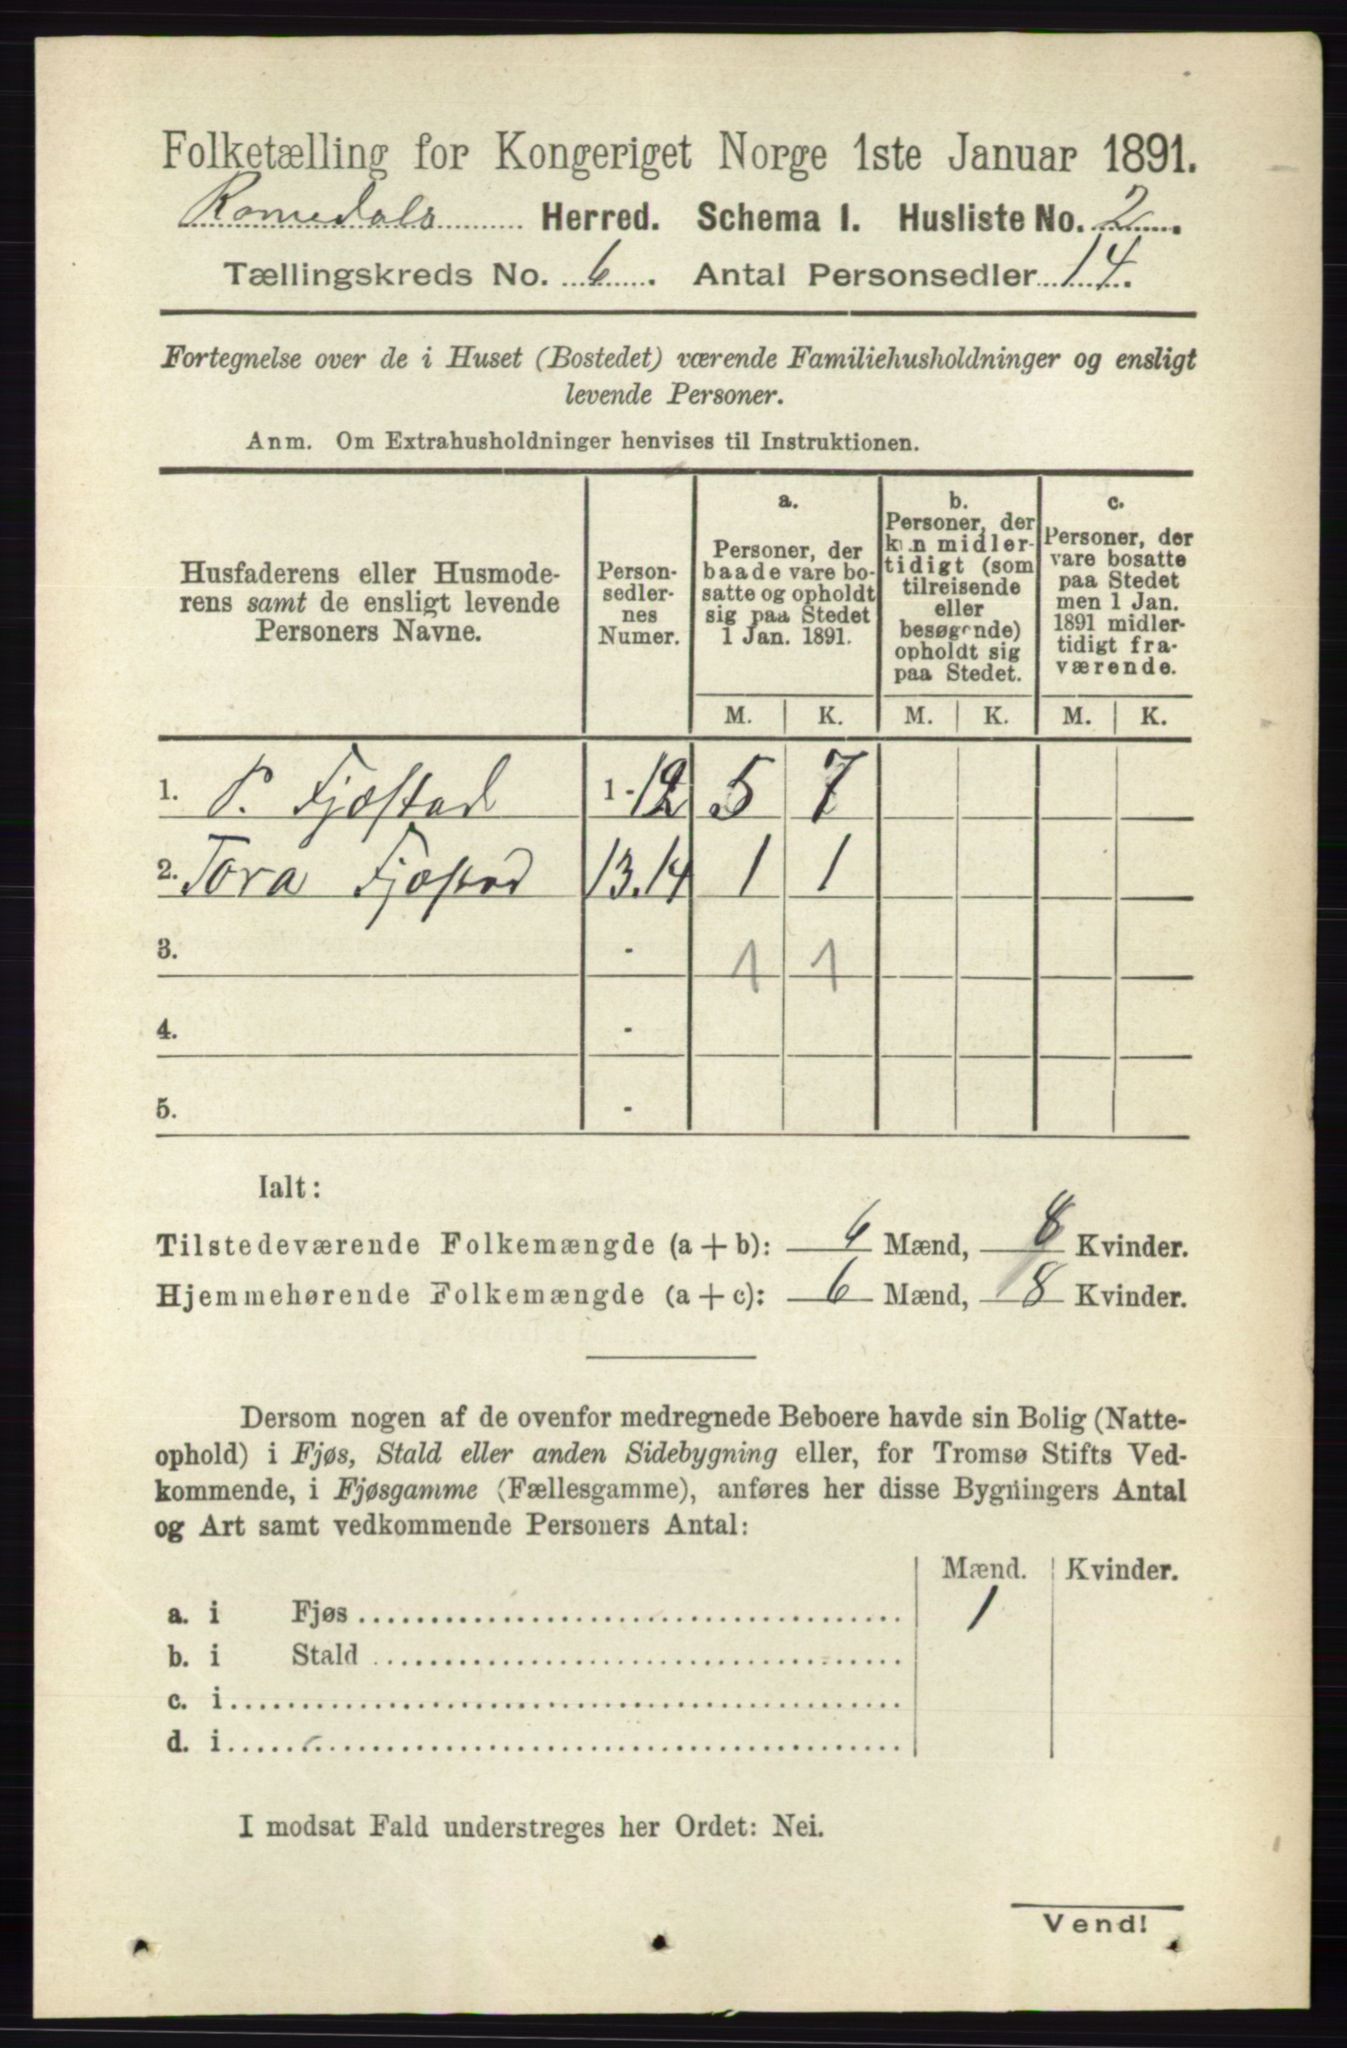 Folketælling for Kongeriget Norge 1ste Januar 1891.
Romedals Herred. Schema I. Husliste No. 2.
Tællingskreds No. 6. Antal Personsedler 14.
Fortegnelse over de i Huset (Bostedet) værende Familiehusholdninger og ensligt
levende Personer.
Anm. Om Extrahusholdninger henvises til Instruktionen.
Husfaderens eller Husmode-
rens samt de ensligt levende
Personers Navne.
Person-
sedler-
nes
Numer.
a.
Personer, der
baade vare bo-
satte og opholdt
sig paa Stedet
1 Jan. 1891.
b.
Personer, der
kun midler-
tidigt (som
tilreisende
eller
besøgende)
opholdt sig
paa Stedet.
c.
Personer, der
vare bosatte
paa Stedet
men 1 Jan.
1891 midler-
tidigt fra-
værende.
M. K. M. K. M. K.
1. P. Fjæstad 1-12 5 7
2. Tora Fjæstad 13.14 1 1
3. - 1 1
4. -
5. -
Ialt:
Tilstedeværende Folkemængde (a+b): 6 Mænd, 8 Kvinder.
Hjemmehørende Folkemængde (a+c): 6 Mænd, 8 Kvinder.
Dersom nogen af de ovenfor medregnede Beboere havde sin Bolig (Natte-
ophold) i Fjøs, Stald eller anden Sidebygning eller, for Tromsø Stifts Ved-
kommende, i Fjøsgamme (Fællesgamme), anføres her disse Bygningers Antal
og Art samt vedkommende Personers Antal:
Mænd. Kvinder.
a. i Fjøs 1
b. i Stald
c. i
d. i
I modsat Fald understreges her Ordet: Nei.
Vend!